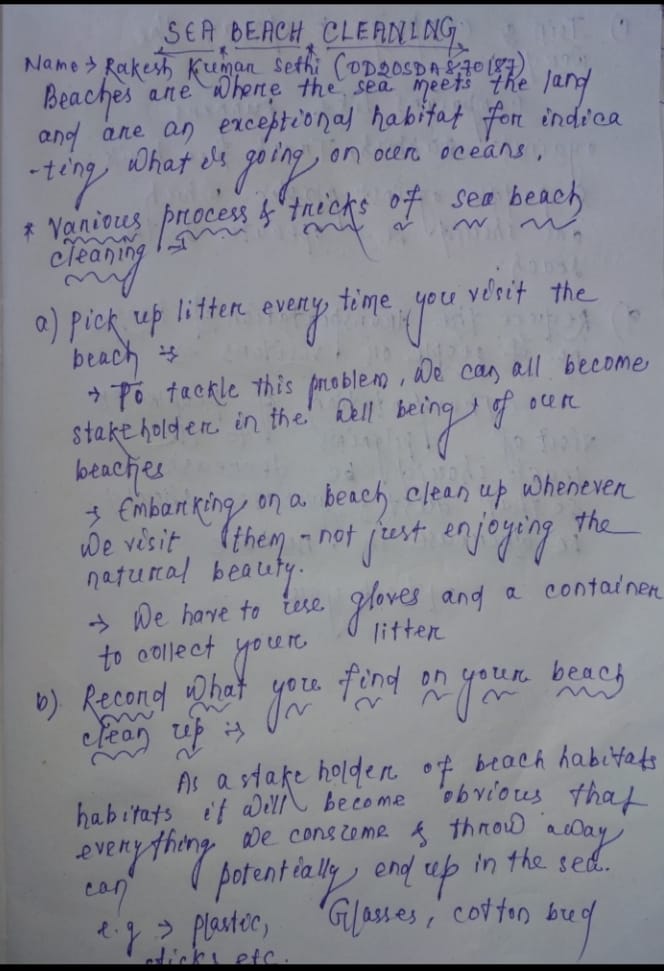 SEA BEACH CLEANING
Name → Rakesh Kumar Sethi (OD20SDA870187)
Beaches are Where the sea meets the land
and are an exceptional habitat for indica
-ting, What is going, on our oceans.
* Various process & tricks of sea beach
cleaning :→
a) Pick up litter every, time you visit the
beach :→
→ To tackle this problem, We can all become
stake holder in the Well being, of our
beaches
→ Embarking, on a beach clean up Whenever
We visit them - not just enjoying the
natural beauty.
→ We have to use gloves and a container
to collect your litter
b) Record What you find on your beach
clean up :→
As a stake holder of beach habitats
habitats it Will become obvious that
everything We consume & throw away
can potentially, end up in the sea.
e.g → plastic, Glasses, cotton bud
sticks etc.